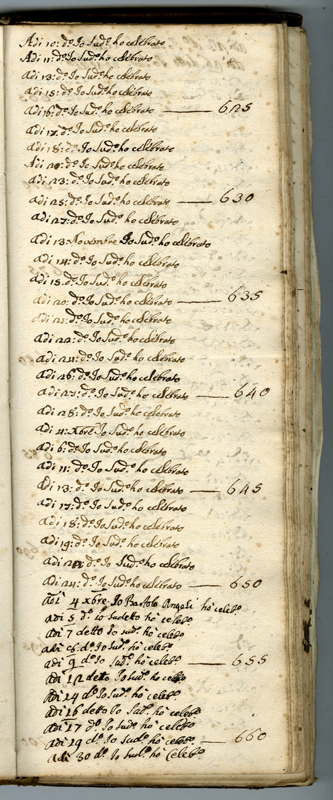 Adi 10: d.º Io Sud.º ho celebrato
Adi 11: d.º Io Sud.º ho celebrato
Adi 13: d.º Io Sud.º ho celebrato
Adi 15: d.º Io Sud.º ho celebrato
Adi 16: d.º Io Sud.º ho celebrato — 625
Adi 17: d.º Io Sud.º ho celebrato
Adi 18: d.º Io Sud.º ho celebrato
Adi 20: d.º Io Sud.º ho celebrato
Adi 23: d.º Io Sud.º ho celebrato
Adi 25: d.º Io Sud.º ho celebrato — 630
Adi 27: d.º Io Sud.º ho celebrato
Adi 13: Novembre Io Sud.º ho celebrato
Adi 14: d.º Io Sud.º ho celebrato
Adi 15: d.º Io Sud.º ho celebrato
Adi 20: d.º Io Sud.º ho celebrato — 635
Adi 21: d.º Io Sud.º ho celebrato
Adi 22: d.º Io Sud.º ho celebrato
Adi 24: d.º Io Sud.º ho celebrato
Adi 26: d.º Io Sud.º ho celebrato
Adi 27: d.º Io Sud.º ho celebrato — 640
Adi 28: d.º Io Sud.º ho celebrato
Adi 4: Xbre Io Sud.º ho celebrato
Adi 6: d.º Io Sud.º ho celebrato
Adi 11: d.º Io Sud.º ho celebrato
Adi 13: d.º Io Sud.º ho celebrato — 645
Adi 17: d.º Io Sud.º ho celebrato
Adi 18: d.º Io Sud.º ho celebrato
Adi 19: d.º Io Sud.º ho celebrato
Adi d.º Io Sud.º ho celebrato
Adi 24: d.º Io Sud.º ho celebrato — 650
Adi 4 xbre Io Bartolo Angeli ho celeb.º
Adi 5 d.º io sudetto ho celeb.º
Adi 7 detto Io sud.º ho celeb.º
Adi d.º Io sud.º ho celeb.º
Adi 9 d.º Io sud.º ho celeb.º — 655
Adi 12 detto Io sud.º ho celeb.º
Adi 14 d.º Io sud.º ho celeb.º
Adi 16 detto Io sud.º ho celeb.º
Adi 17 d.º Io sud.º ho celeb.º
Adi 19 d.º Io sud.º ho celeb.º — 660
Adi 30 d.º Io sud.º ho celeb.º